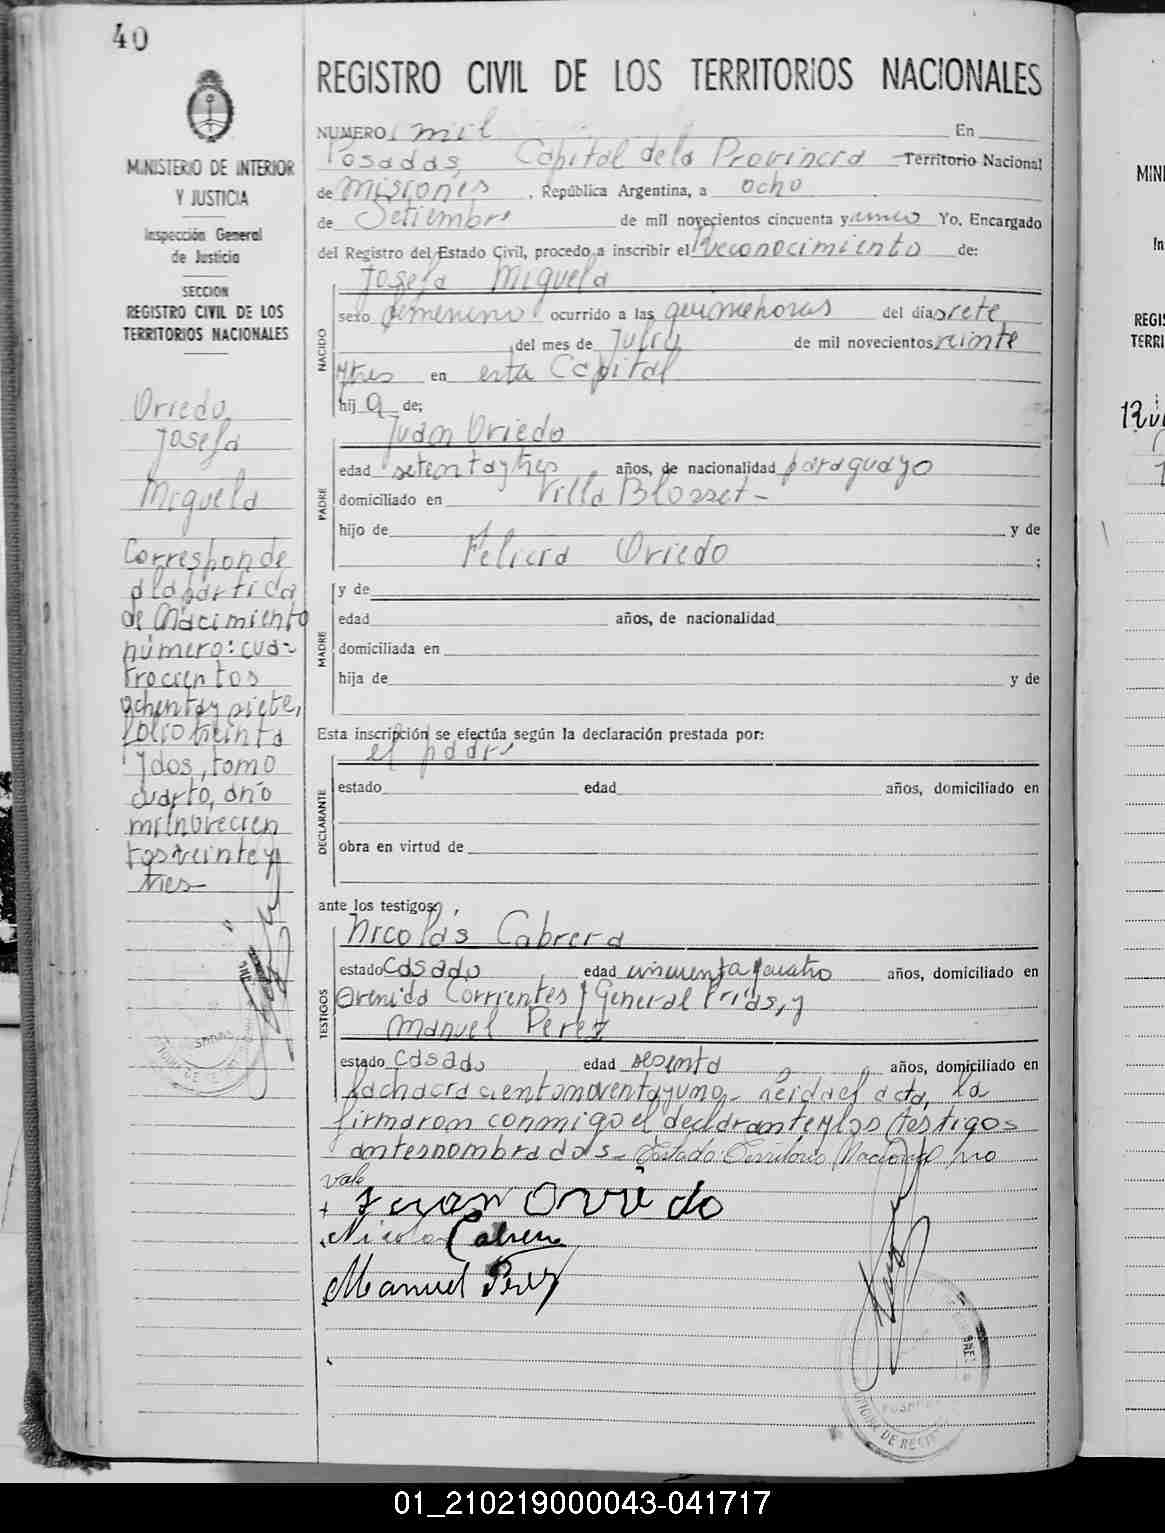 40
MINISTERIO DE INTERIOR
Y JUSTICIA
Inspección General
de Justicia
SECCION
REGISTRO CIVIL DE LOS
TERRITORIOS NACIONALES
Oviedo
Josefa
Miguela
Corresponde
a la partida
de Nacimiento
número: cua-
trocientos
ochenta y siete,
folio treinta
y dos, tomo
cuarto, año
mil novecien
tos veinte y
tres
REGISTRO CIVIL DE LOS TERRITORIOS NACIONALES
NUMERO mil En
Posadas, Capital de la Provincia Territorio Nacional
de Misiones, República Argentina, a ocho
de Setiembre de mil novecientos cincuenta y uno Yo, Encargado
del Registro del Estado Civil, procedo a inscribir el Reconocimiento de:
Josefa Miguela
NACIDO
sexo femenino ocurrido a las quince horas del día siete
del mes de Julio de mil novecientos veinte
y tres en esta Capital
hij a de:
Juan Oviedo
PADRE
edad setenta y tres años, de nacionalidad paraguayo
domiciliado en Villa Blosset -
hijo de y de
Felicia Oviedo ;
MADRE
y de
edad años, de nacionalidad
domiciliada en
hija de y de
Esta inscripción se efectúa según la declaración prestada por:
el padre
DECLARANTE
estado edad años, domiciliado en
obra en virtud de
ante los testigos,
Nicolás Cabrera
TESTIGOS
estado Casado edad cincuenta y cuatro años, domiciliado en
Avenida Corrientes y General Frías, y
Manuel Perez
estado casado edad sesenta años, domiciliado en
la chacra ciento noventa y uno - leida el acta, la
firmaron conmigo el declarante y los testigos
antes nombrados - Testado: Territorio Nacional no
vale
Juan Oviedo
Nicolas Cabrera
Manuel Perez
01_210219000043-041717